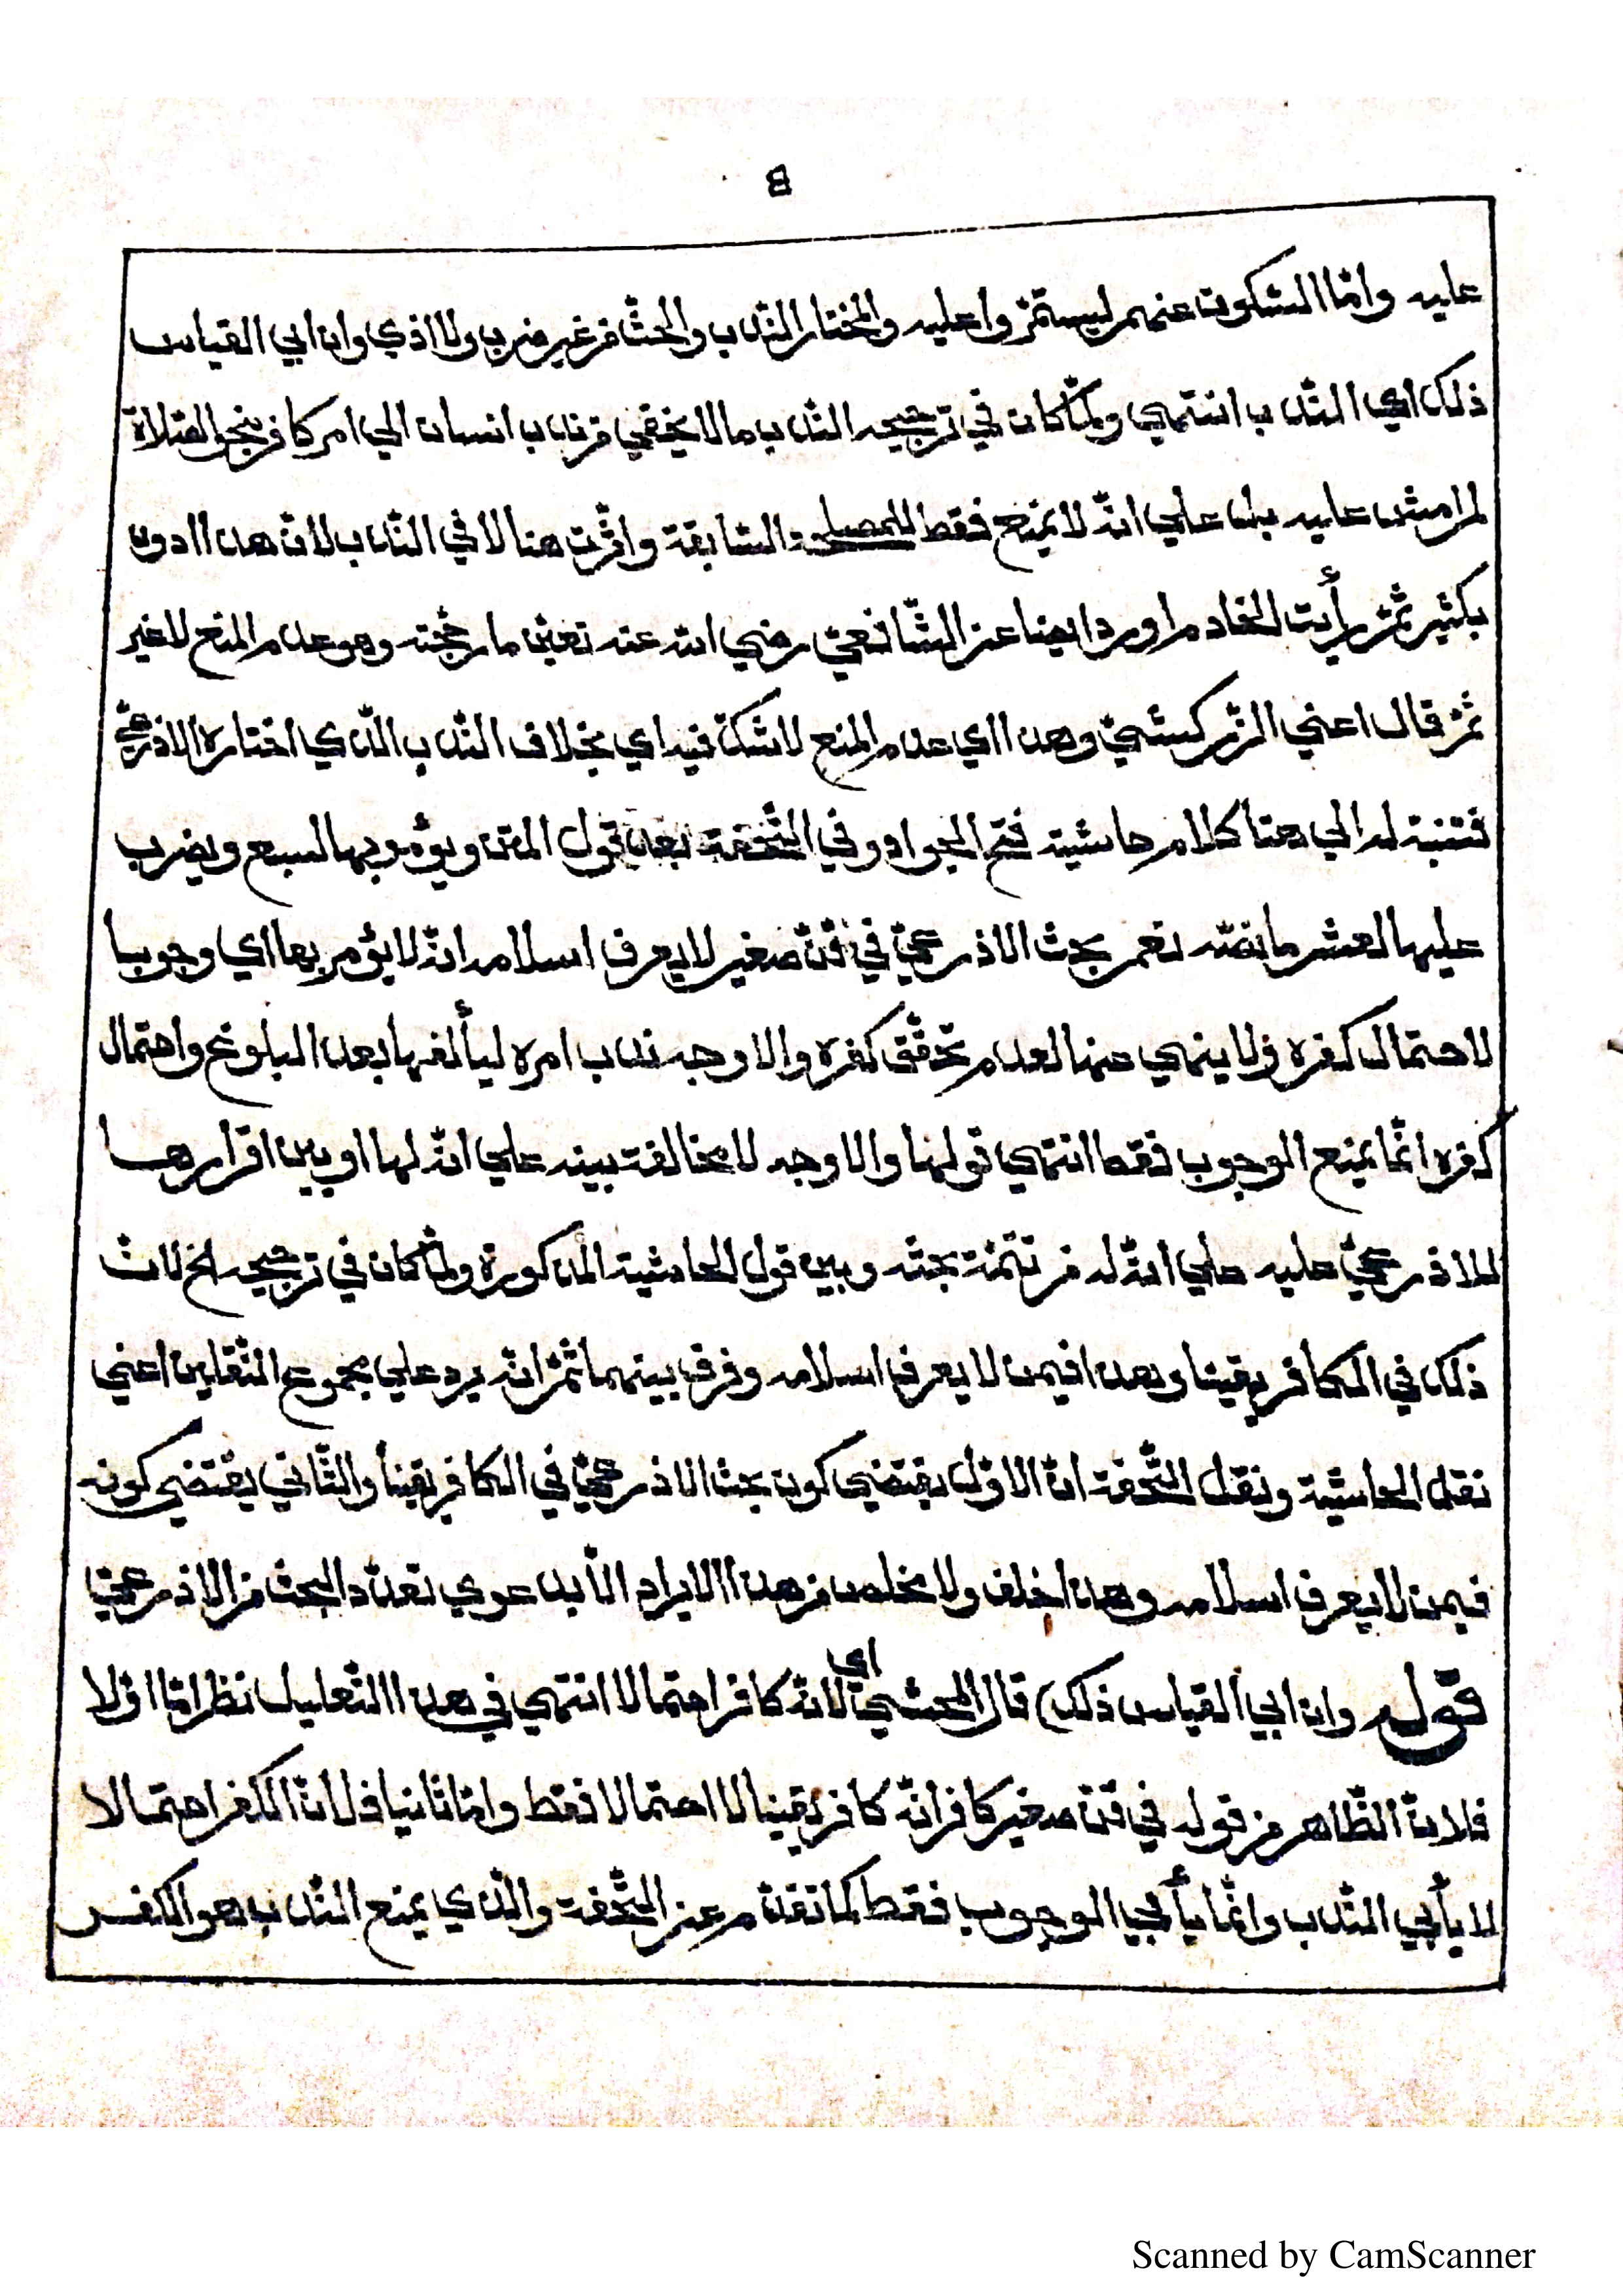 8
عليه وامّا السّكوت عنهم ليستمرّوا عليه والمختار النّدب والحثّ من غير ضرب ولا اذي وان ابي القياس
ذلك اي النّدب انتهي ولمّا كان في ترجيحه النّدب ما لا يخفي من ندب انسان الي امر كافر بنحو الصّلاة
لم امش عليه بل علي انّه لا يمنع فقط للمصلحة السّابقة واثّرت هنا لا في النّدب لانّ هذا ادون
بكثير ثمّ رأيت الخادم اورد ايضا عن الشّافعيّ رضي الله عنه تعيّن ما رجّحته وهو عدم المنع لا غير
ثمّ قال اعني الزّركشيّ وهذا اي عدم المنع لا شكّ فيه اي بخلاف النّدب الّذي اختاره الاذرعيّ
فتنبّه له الي هنا كلام حاشية فتح الجواد وفي التّحفة بعد قول المتن ويؤمر بها لسبع ويضرب
عليها لعشر ما نصّه نعم بحث الاذرعيّ في قنّ صغير لا يعرف اسلامه انّه لا يؤمر بها اي وجوبا
لاحتمال كفره ولا ينهي عنها لعدم تحقّق كفره والاوجه ندب امره ليألفها بعد البلوغ واحتمال
كفره انّما يمنع الوجوب فقط انتهي قولها والاوجه لا مخالفة بينه علي انّه لها او بين اقرارها
للاذرعيّ عليه علي انّه له من تتمّة بحثه وبين قول الحاشية المذكورة ولمّا كان في ترجيحه الخ لانّ
ذلك في الكافر يقينا وهذا فيمن لا يعرف اسلامه وفرق بينهما ثمّ انّه يرد علي مجموع النّقلين اعني
نقل الحاشية ونقل التّحفة انّ الاوّل يقتضي كون بحث الاذرعيّ في الكافر يقينا والثّاني يقتضي كونه
فيمن لا يعرف اسلامه وهذا خلف ولا مخلص من هذا الايراد الّا بدعوي تعدّد البحث من الاذرعيّ
قوله وان ابي القياس ذلك) قال المحشّي اي لانّه كافر احتمالا انتهي في هذا التّعليل نظر امّا اوّلا
فلانّ الظّاهر من قوله في قنّ صغير كافر انّه كافر يقينا لا احتمالا فقط وامّا ثانيا فلانّ الكفر احتمالا
لا يأبي النّدب وانّما يأبي الوجوب فقط كما تقدّم عن التّحفة والّذي يمنع النّدب هو الكفر
Scanned by CamScanner